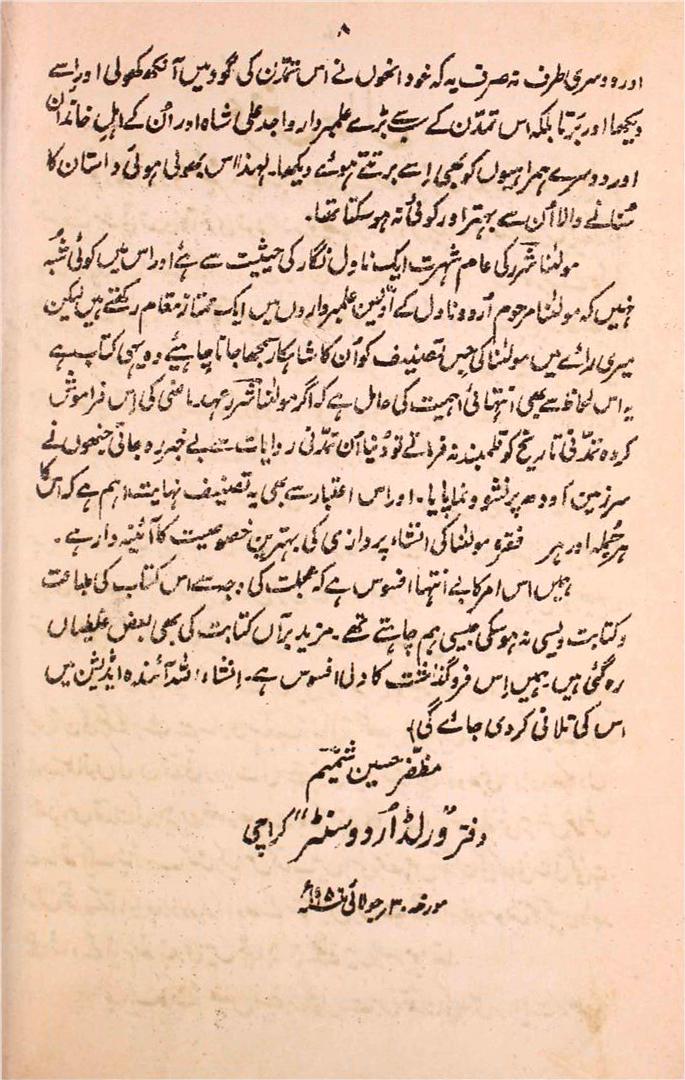 ۸
اور دوسری طرف نہ صرف یہ کہ خود انھوں نے اس تمدّن کی گود میں آنکھ کھولی اور اسے
دیکھا اور برتا بلکہ اس تمدّن کے سب سے بڑے علمبردار واجد علی شاہ اور اُن کے اہلِ خاندان
اور دوسرے ہمراہیوں کو بھی اِسے برتتے ہوئے دیکھا۔ لہٰذا اس بھولی ہوئی داستان کا
سُنانے والا اُن سے بہتر اور کوئی نہ ہو سکتا تھا۔
مولٰنا شررؔ کی عام شہرت ایک ناول نگار کی حیثیت سے ہے اور اس میں کوئی شُبہ
نہیں کہ مولٰنا مرحوم اُردو ناول کے اوّلین علمبرداروں میں ایک ممتاز مقام رکھتے ہیں لیکن
میری رائے میں مولٰنا کی جِس تصنیف کو اُن کا شاہکار سمجھا جانا چاہیئے وہ یہی کتاب ہے
یہ اس لحاظ سے بھی انتہائی اہمیت کی حامل ہے کہ اگر مولٰنا شررؔ عہدِ ماضی کی اِس فراموش
کردہ تمدّنی تاریخ کو قلمبند نہ فرماتے تو دُنیا اُن تمدّنی روایات سے بے خبر رہ جاتی جنھوں نے
سرزمینِ اَودھ پر نشو و نما پایا۔ اور اس اعتبار سے بھی یہ تصنیف نہایت اہم ہے کہ اس کا
ہر جُملہ اور ہر فقرہ مولٰنا کی انشاء پردازی کی بہترین خصوصیت کا آئینہ دار ہے۔
ہمیں اس امر کا بے انتہا افسوس ہے کہ عجلت کی وجہ سے اس کتاب کی طباعت
و کتابت ویسی نہ ہو سکی جیسی ہم چاہتے تھے۔ مزید برآں کتابت کی بھی بعض غلطیاں
رہ گئی ہیں۔ ہمیں اِس فروگذاشت کا دلی افسوس ہے۔ انشاء اللہ آئندہ ایڈیشن میں
اس کی تلافی کر دی جائے گی﴾
مظفّر حسین شمیمؔ
دفتر "ورلڈ اُردو سنٹر" کراچی
مورخہ ۳۰ر جولائی ۱۹۵۶ء